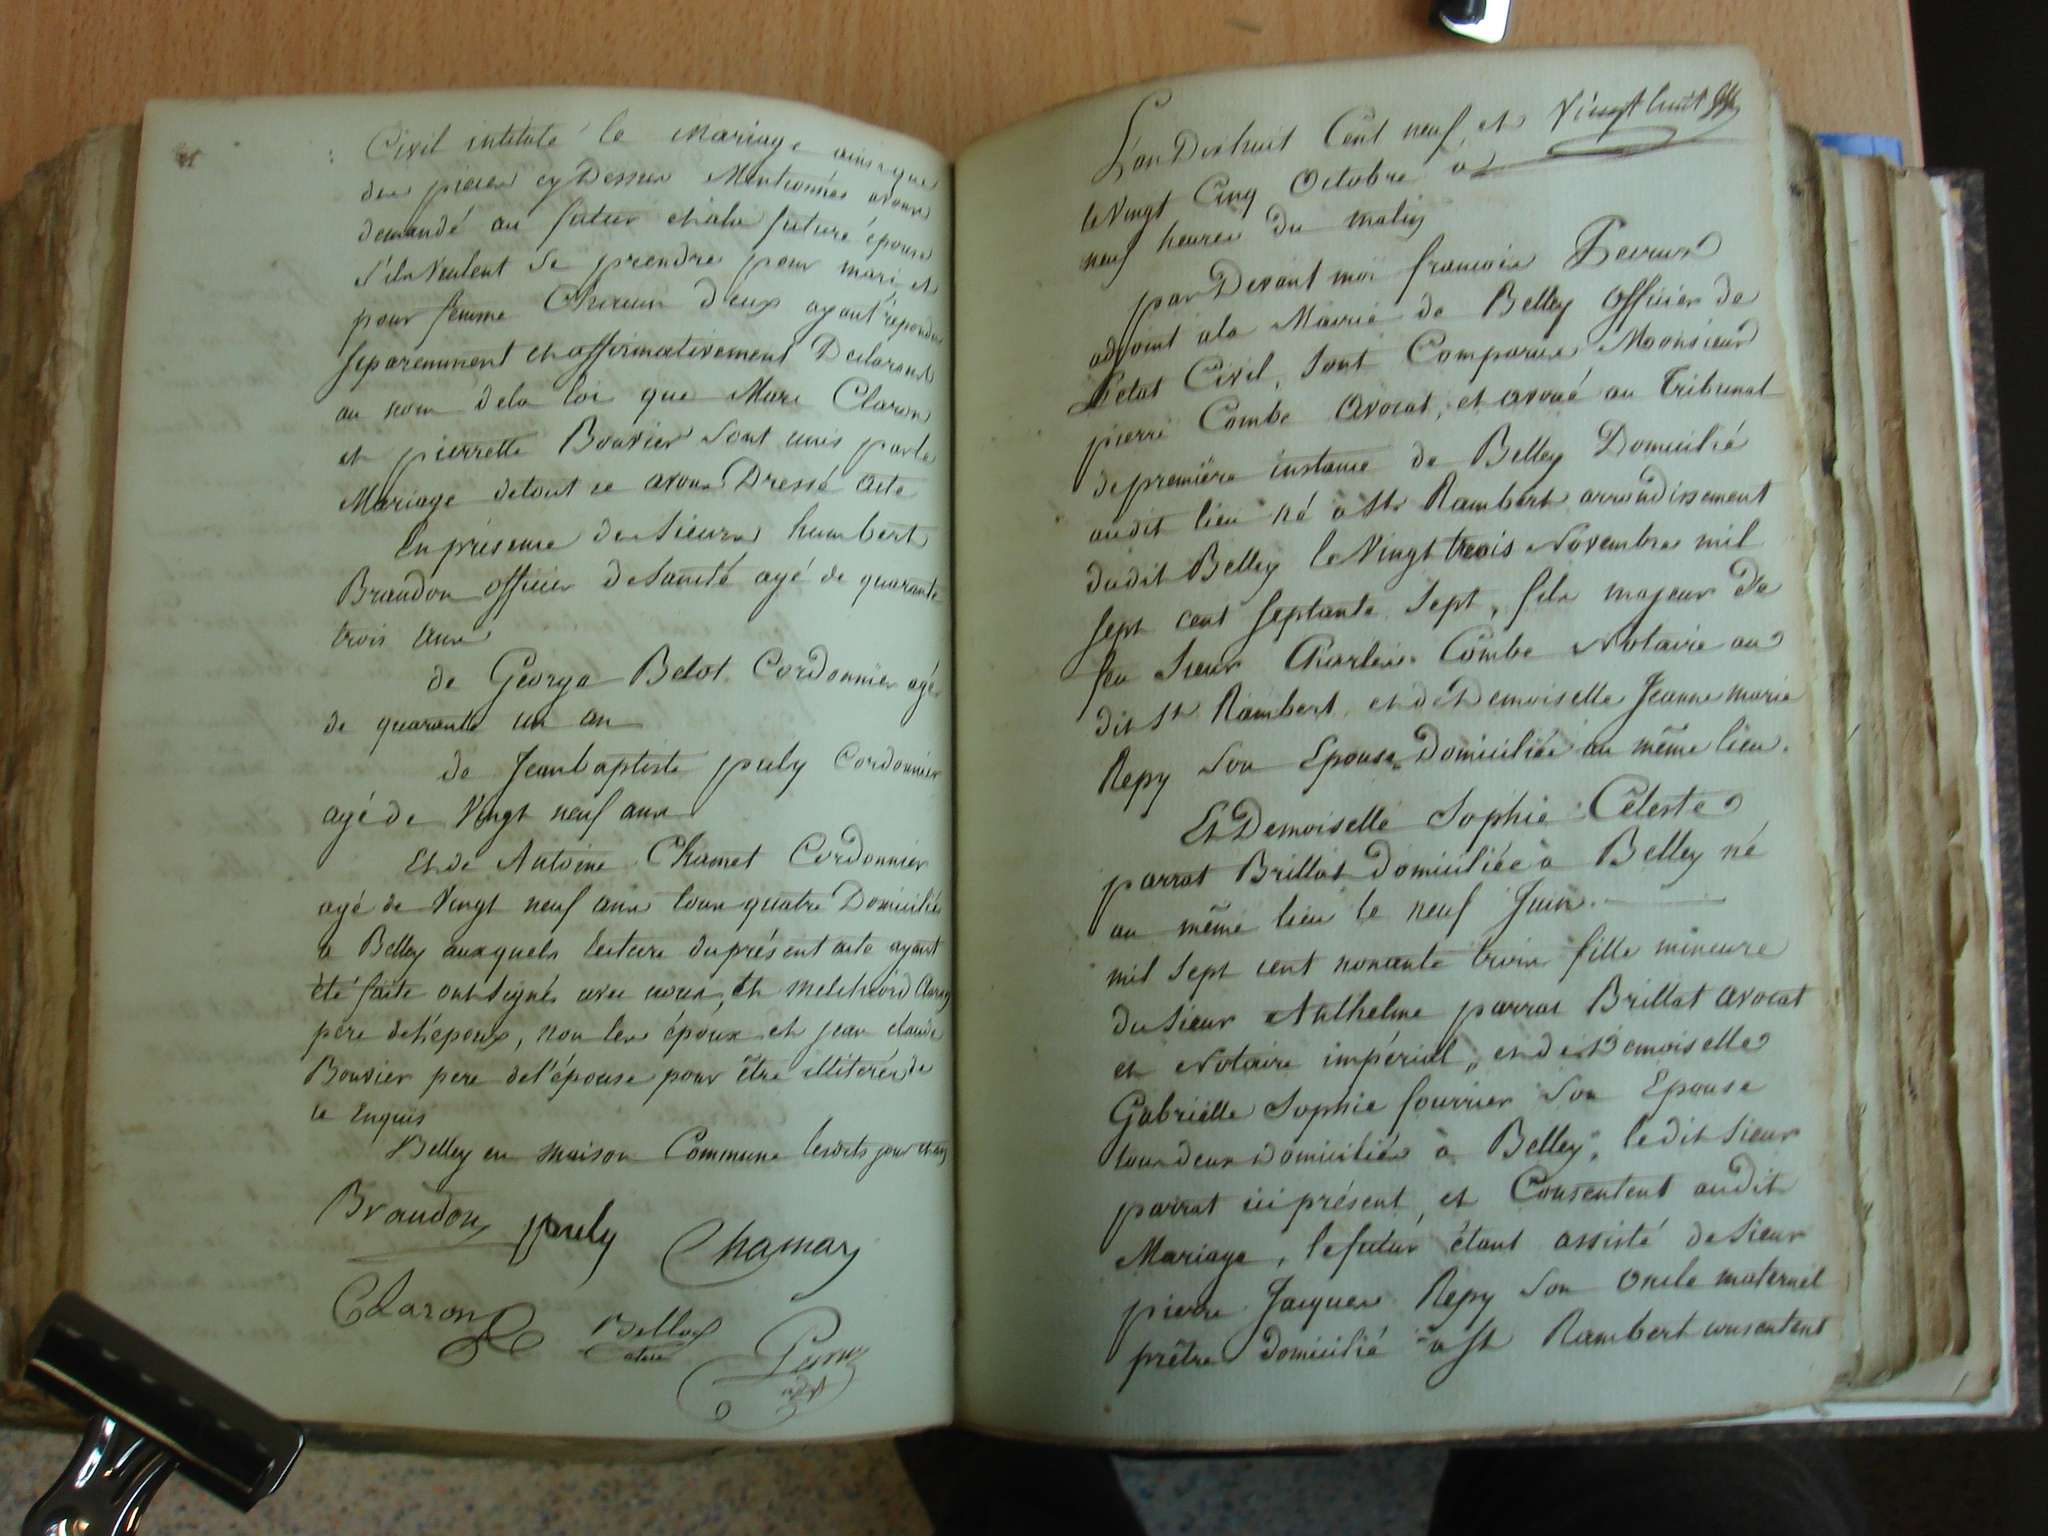 Civil intitulé le Mariage ainsi que
des pieces cy Dessus Mentionnées avons
demandé au futur et ala future épouse
s'ils Veulent se prendre pour mari et
pour femme Chacun d'eux ayant répondu
separemment et affirmativement Declarons
au nom dela loi que Marc Claron
et pierrette Bouvier sont unis par le
Mariage detout ce avons Dressé acte
En présence des Sieurs humbert
Braudon officier de Santé agé de quarante
trois ans
de George Belot Cordonnier agé
de quarante un an
de Jean baptiste puly Cordonnier
agé de Vingt neuf ans
Et de Antoine Chamet Cordonnier
agé de Vingt neuf ans tous quatre Domiciliés
a Belley auxquels lecture du présent acte ayant
été faite ont signés avec nous, Et melchiord Claron
pere de l'époux, non les époux et jean claude
Bouvier pere de l'épouse pour être illiterés de
ce Enquis
Belley en maison Commune lesdits jour et an
Braudon puly Chamay
Claron
adjt
L'an Dixhuit Cent neuf et Vingt huit
le Vingt Cinq Octobre à
neuf heures du matin
par Devant moi francois
adjoint ala Mairie de Belley officier de
L'etat Civil, sont Comparus Monsieur
pierre Combe avocat, et avoué au Tribunal
de première instance de Belley Domicilié
audit lieu né à St Rambert arrondissement
dudit Belley le Vingt trois Novembre mil
sept cent septante sept, fils majeur de
feu Sieur Charles Combe Notaire au
dit St Rambert, et de Demoiselle Jeanne marie
Repy son Epouse Domiciliée au même lieu.
Et Demoiselle Sophie Céleste
parrat Brillat Domiciliée à Belley né
au même lieu le neuf Juin.
mil sept cent nonante trois fille mineure
du Sieur Anthelme parrat Brillat avocat
et Notaire impérial, et de Demoiselle
Gabrielle Sophie fourrier son Epouse
tous deux domiciliés à Belley, ledit sieur
parrat ici présent, et Consentent audit
Mariage, le futur étant assisté de Sieur
pierre Jacques Repy son oncle maternel
prêtre domicilié à St Rambert consentent